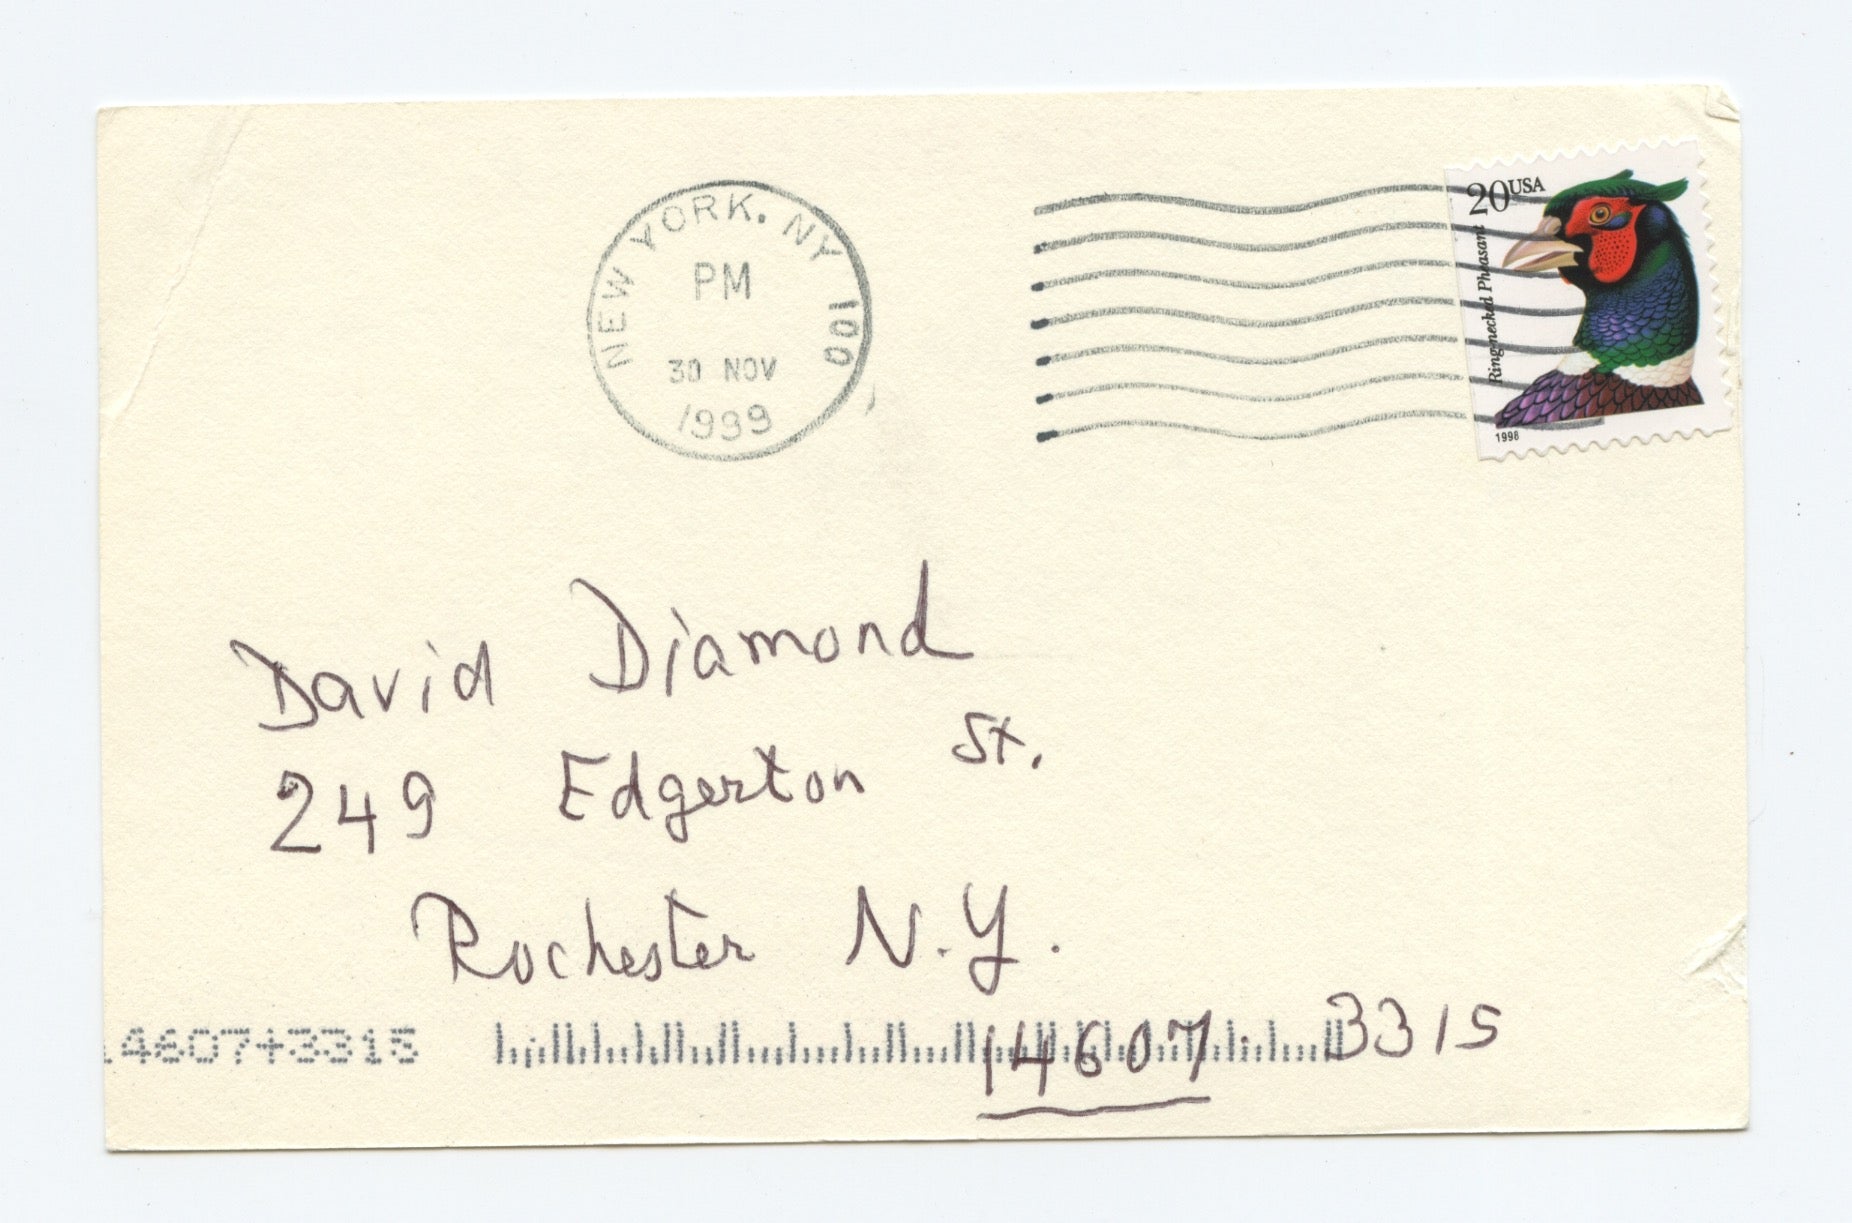 NEW YORK, NY 100
PM
30 NOV
1999
20 USA
Ring-necked Pheasant
1998
David Diamond
249 Edgerton St.
Rochester N.Y.
14607 . 3315
14607+3315